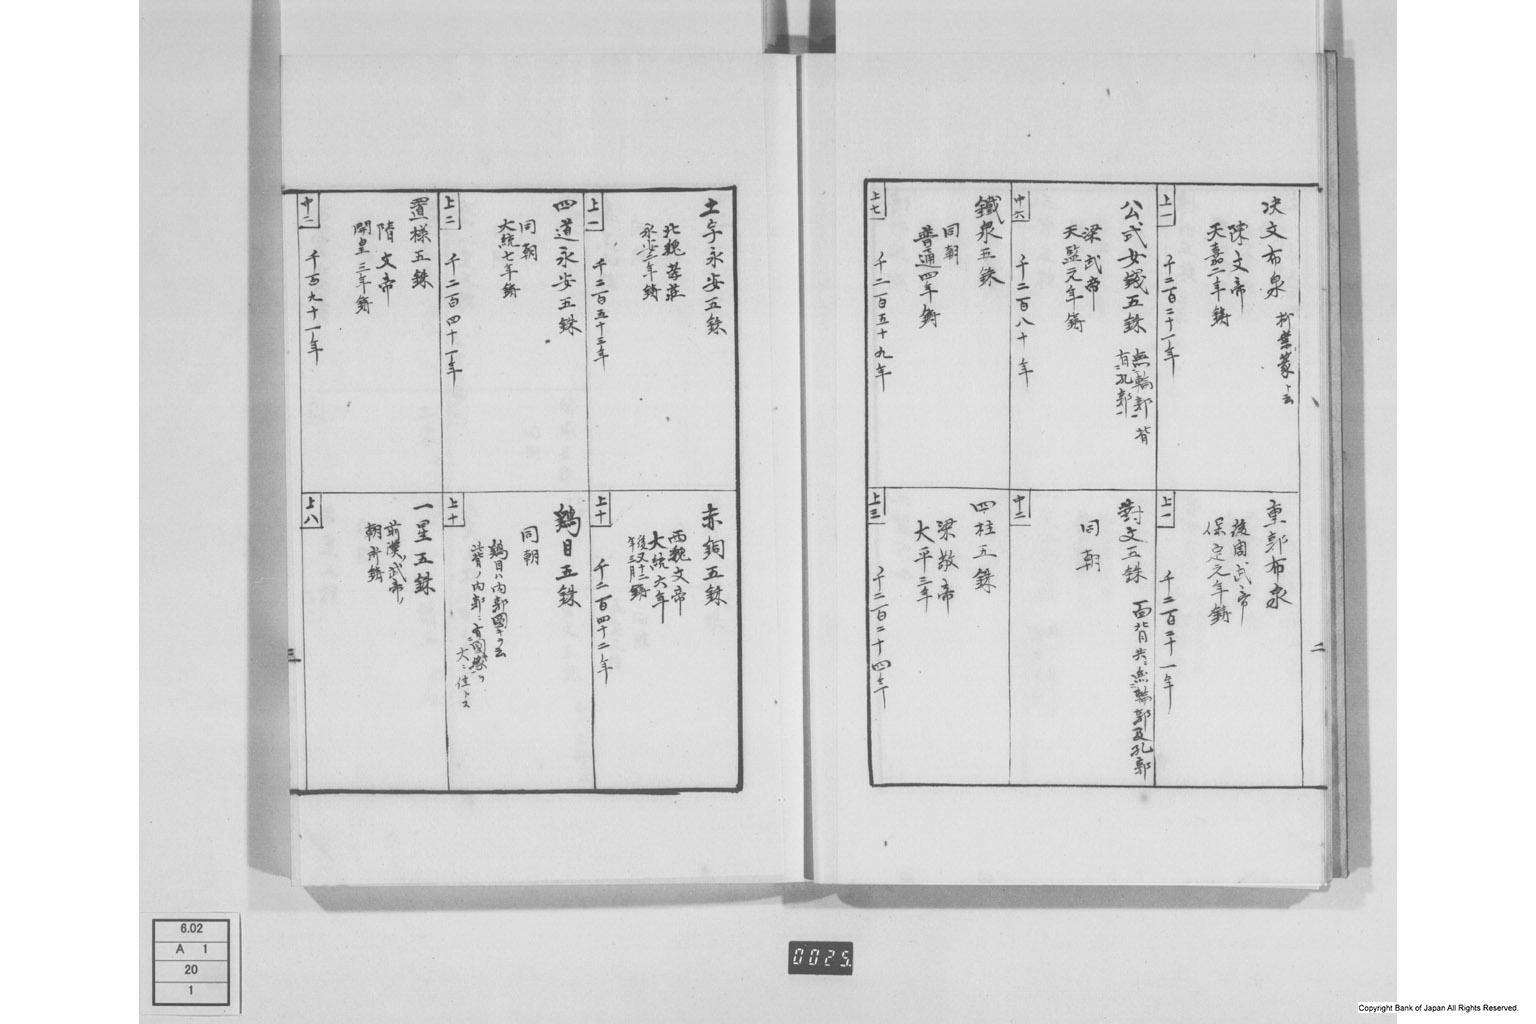 決文布泉
陳文帝
天嘉二年鋳
上一
千二百二十一年
公式女銭五銖
無輪郭背
有孔郭
梁武帝
天監元年鋳
中六
千二百八十年
鐵泉五銖
同朝
普通四年鋳
上七
千二百五十九年
重郭布泉
後周武帝
保定元年鋳
上一
千二百二十一年
對文五銖
面背共ニ無輪郭及孔郭
同朝
中二
四柱五銖
梁敬帝
大平三年
上三
千二百二十四年
二
土字永安五銖
北魏孝荘
永安二年鋳
上一
千二百五十三年
四道永安五銖
同朝
大統七年鋳
上二
千二百四十一年
置様五銖
隋文帝
開皇三年鋳
中二
千百九十一年
赤銅五銖
西魏文帝
大統六年
後又十二
年三月鋳
上十
千二百四十二年
鶏目五銖
同朝
上十
一星五銖
前漢武帝
朝所鋳
上八
三
6.02
A 1
20
1
0025
Copyright Bank of Japan All Rights Reserved.